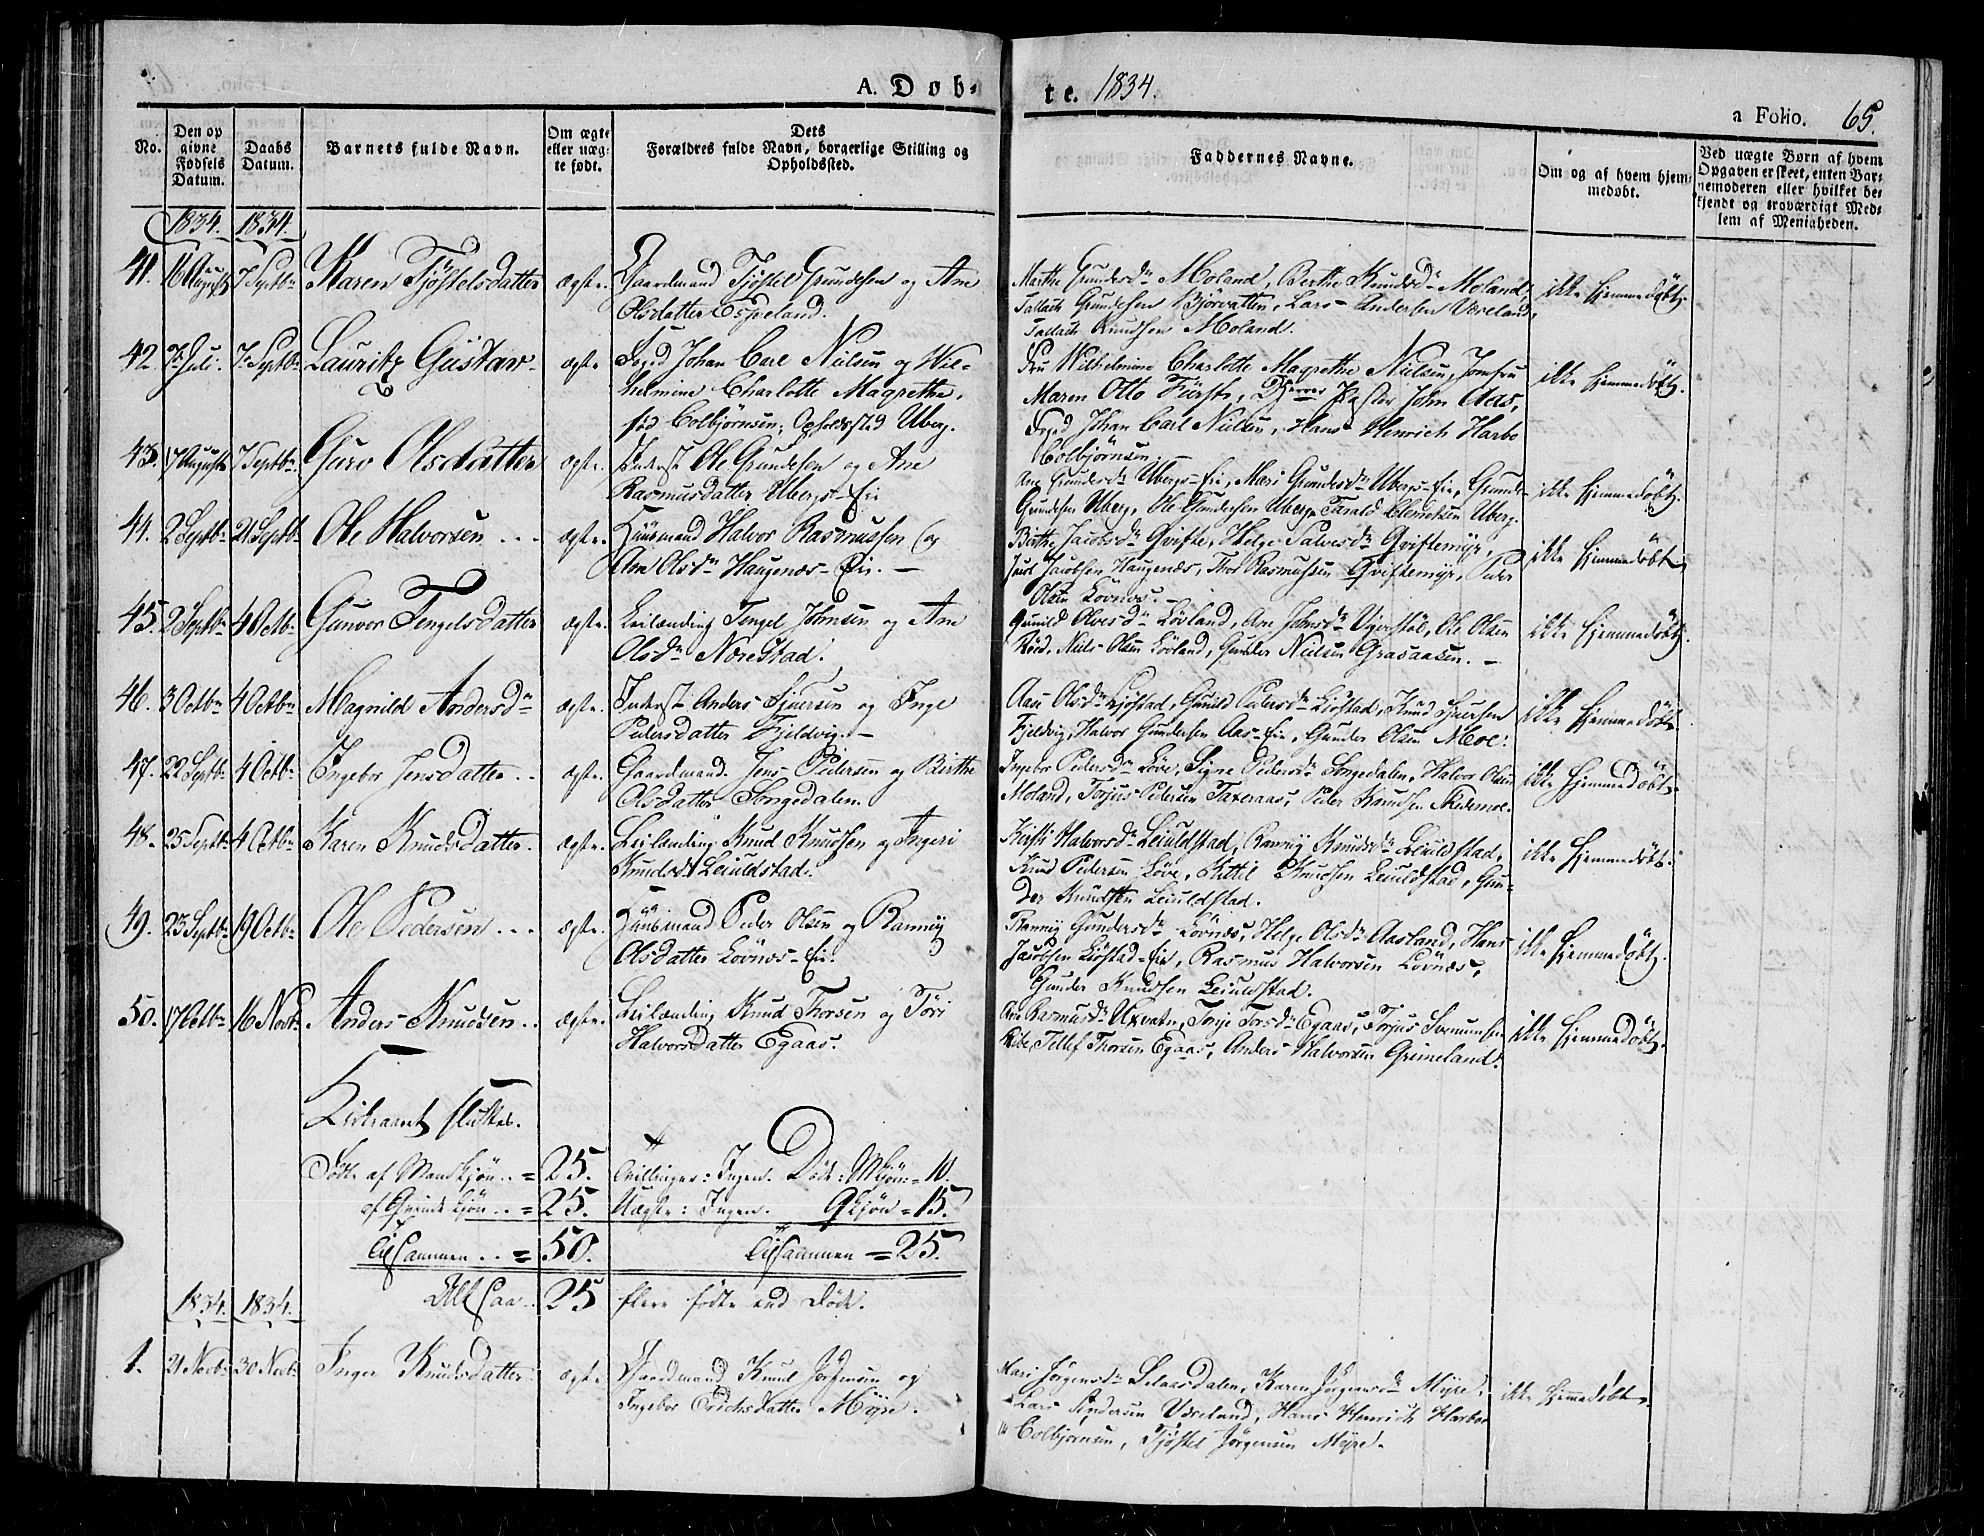 A. Døb-
te. 1834.
a Folio. 65.
No.
Den op
givne
Fødsels
Datum.
Daabs
Datum.
Barnets fulde Navn.
Om ægte
eller uæg-
te født.
Dets
Forældres fulde Navn, borgerlige Stilling og
Opholdssted.
Faddernes Navne.
Om og af hvem hjem-
medøbt.
Ved uægte Børn af hvem
Opgaven er skeet, enten Bar-
nemoderen eller hvilket be-
kjendt og troværdigt Med-
lem af Menigheden.
1834. 1834.
41. 16 August 7 Septbr Karen Tjöstelsdatter ægte. Gaardmand Tjöstel Grundesen og Ane
Olsdatter Espeland.
Marthe Grundesdr Moland, Berthe Knudsdr Moland,
Tallach Grundesen Björvatten, Lars Andersen Vereland,
Tallach Knudsen Moland.
ikke hjemmedöbt.
42. 7 Juli 7 Septbr Lauritz Gustav ægte. Foged Johan Carl Nielsen og Wil-
helmine Charlotte Magrethe,
fød Colbjörnsen; Opholdssted Uberg.
Fru Wilhelmine Charlotte Magrethe Nielsen, Jomfru
Maren Otto Fürst, Dherrer Pastor John Aas,
Foged Johan Carl Nielsen, Hans Henrich Harbo
Colbjörnsen.
ikke hjemmedöbt.
43. 17 August 7 Septbr Guro Olsdatter ægte. Inderst Ole Grundesen og Ane
Rasmusdatter Ubergs-Eie
Ane Grundesdr Ubergs-Eie, Mari Grundesdr Ubergs-Eie, Grunde
Grundesen Uberg, Ole Gundersen Uberg, Tarald Clemetsen Uberg.
ikke hjemmedöbt.
44. 2 Septbr 21 Septbr Ole Halvorsen ægte. Huusmand Halvor Rasmussen og
Ane Olsdr Haugenæs-Eie.
Birthe Jacobsdr Gvifte, Helge Salvesdr Gviftemyr,
Juul Jacobsen Haugenæs, Thor Rasmussen Gviftemyr, Peder
Olsen Lövnæs.
ikke hjemmedöbt.
45. 2 Septbr 4 Octbr Gunvor Tengelsdatter ægte. Leilænding Tengel Johnsen og Ane
Olsdr Nærestad.
Gunild Olvesdr Lövland, Ane Johnsdr Vigerstöl, Ole Olsen
Röed, Niels Olsen Lövland, Gunder Nielsen Graaaasen.
ikke hjemmedöbt.
46. 3 Octbr 4 Octbr Magnild Andersdr ægte. Inderst Anders Sjursen og Inge
Pedersdatter Fjeldvig.
Aase Olsdr Ljöstad, Gunild Pedersdr Ljöstad, Knud Sjursen
Fjeldvig, Halvor Gundersen Aas-Eie, Gunder Olsen Moe.
ikke hjemmedöbt.
47. 22 Septbr 4 Octbr Ingebor Jensdatter ægte. Gaardmand Jens Pedersen og Birthe
Olsdatter Songedalen.
Ingebor Pedersdr Löve, Signe Pedersdr Songedalen, Halvor Olsen
Moland, Torjus Pedersen Taxeraas, Peder Knudsen Skedsmoe.
ikke hjemmedöbt.
48. 25 Septbr 4 Octbr Karen Knudsdatter ægte. Leilænding Knud Knudsen og Ingeri
Knudsdr Leiuldstad.
Kirsti Halvorsdr Leiuldstad, Rannöy Knudsdr Leiuldstad,
Knud Pedersen Löve, Kittil Knudsen Leiuldstad, Gun-
der Knudsen Leiuldstad.
ikke hjemmedöbt.
49. 23 Septbr 19 Octbr Ole Pedersen ægte. Huusmand Peder Olsen og Rannöy
Olsdatter Lövnæs-Eie.
Rannöy Gundersdr Lövnæs, Helge Olsdr Aasland, Hans
Jacobsen Ljöstad-Eie, Rasmus Halvorsen Lövnæs,
Gunder Knudsen Leiuldstad.
ikke hjemmedöbt.
50. 17 Octbr 16 Novbr Anders Knudsen ægte. Leilænding Knud Thorsen og Töri
Halvorsdatter Egaas.
Ane Rasmusdr Uxevatn, Tonje Torsdr Egaas, Torjus Svenumsen
Ribe, Tellef Thorsen Egaas, Anders Halvorsen Grimeland.
ikke hjemmedöbt.
Kirkeaaret sluttes.
Födte af Mandkjön = 25. Tvillinger: Ingen. Döde: Mkjön = 10.
af Qvindekjön = 25. Uægte: Ingen. Qkjön = 15.
Tilsammen = 50. Tilsammen = 25.
Altsaa 25 flere födte end Döde.
1834. 1834.
1. 21 Novbr 30 Novbr Inger Knudsdatter ægte Gaardmand Knud Jörgensen og
Ingebor Erichsdatter Myre.
Mari Jörgensdr Selaasdalen, Karen Jörgensdr Myre,
Lars Andersen Vereland, Hans Henrich Harboe
Colbjornsen, Tjöstel Jörgensen Myre.
ikke hjemmedöbt.